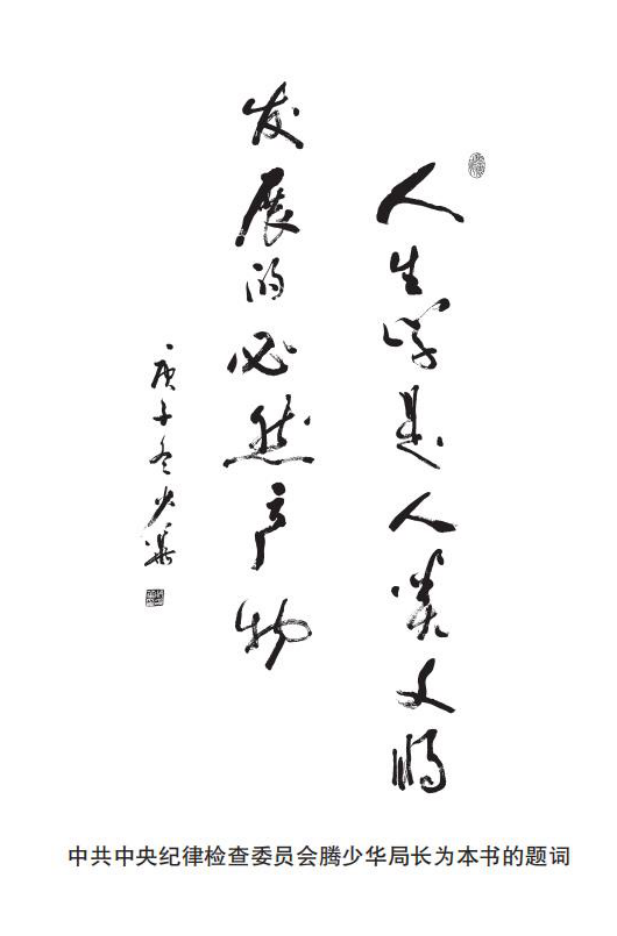 人生学是人类文明
发展的必然产物
庚子冬少华
中共中央纪律检查委员会腾少华局长为本书的题词